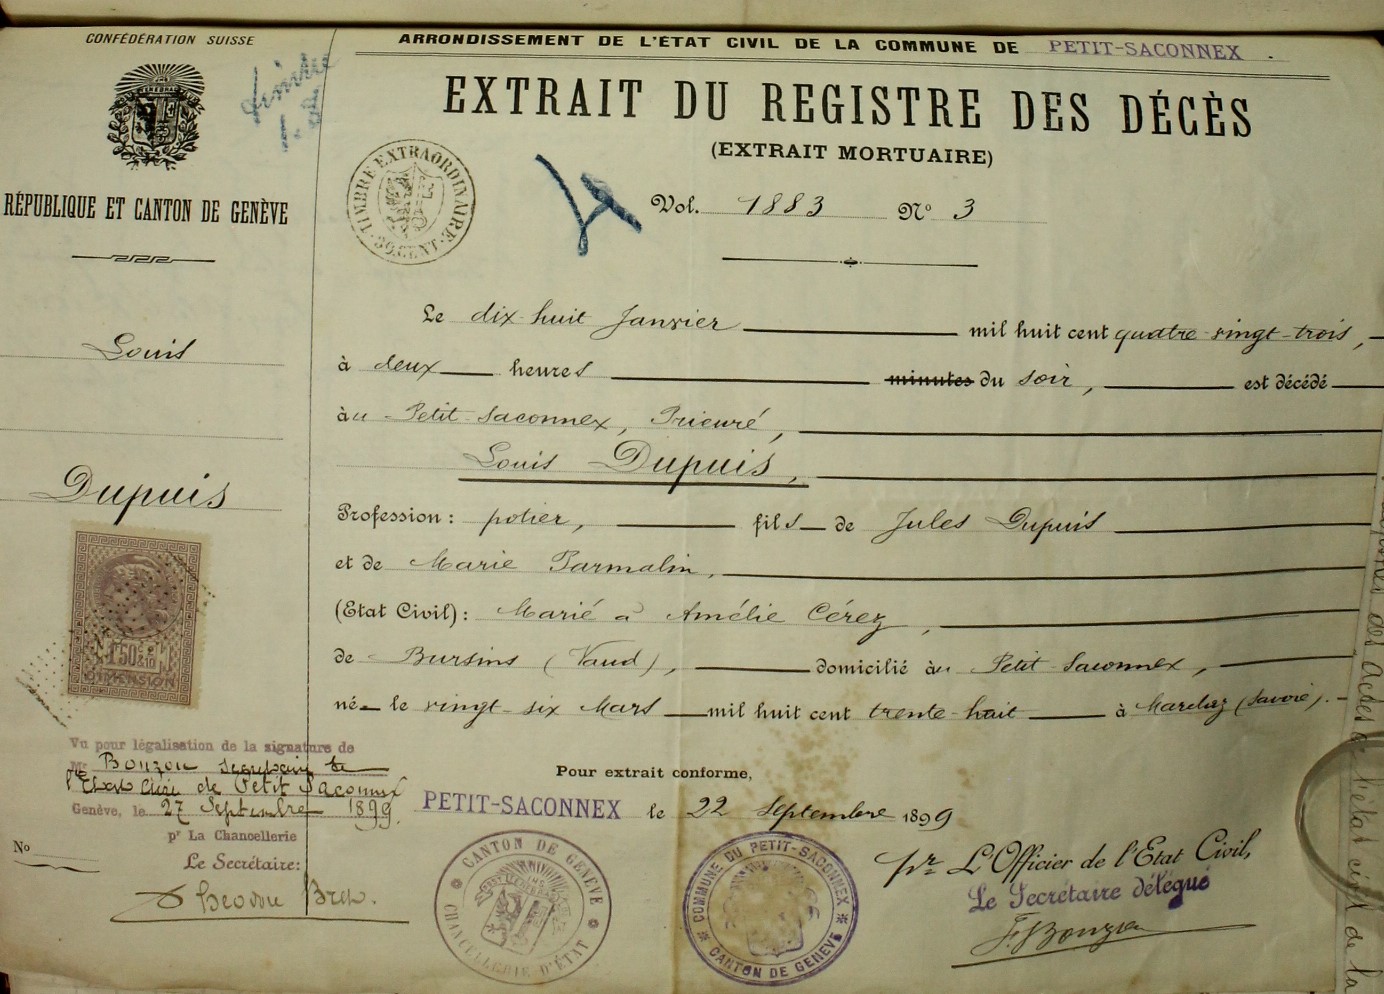 CONFÉDÉRATION SUISSE
RÉPUBLIQUE ET CANTON DE GENÈVE
Louis
Dupuis
1F50
DIMENSION
Vu pour légalisation de la signature de
Mr Bonzon Secrétaire de
l'Etat Civil de Petit Saconnex
Genève, le 27 Septembre 1899
pr La Chancellerie
No
Le Secrétaire:
ARRONDISSEMENT DE L'ÉTAT CIVIL DE LA COMMUNE DE PETIT-SACONNEX.
EXTRAIT DU REGISTRE DES DÉCÈS
(EXTRAIT MORTUAIRE)
TIMBRE EXTRAORDINAIRE
CENT.
Vol. 1883 No 3
Le dix-huit Janvier mil huit cent quatre-vingt-trois,
à deux heures minutes du soir, est décédé
au Petit-Saconnex, Prieuré,
Louis Dupuis,
Profession: potier, fils de Jules Dupuis
et de Marie Parmalin,
(Etat Civil): Marié à Amélie Cérez,
de Bursins (Vaud), domicilié au Petit-Saconnex,
né le vingt-six Mars mil huit cent trente-huit à (Savoie).
Pour extrait conforme,
PETIT-SACONNEX le 22 Septembre 1899
pr L'Officier de l'Etat Civil,
Le Secrétaire délégué
F. Bonzon
CANTON DE GENÈVE
CHANCELLERIE D'ÉTAT
COMMUNE DU PETIT-SACONNEX
CANTON DE GENÈVE
des actes de l'état civil de la